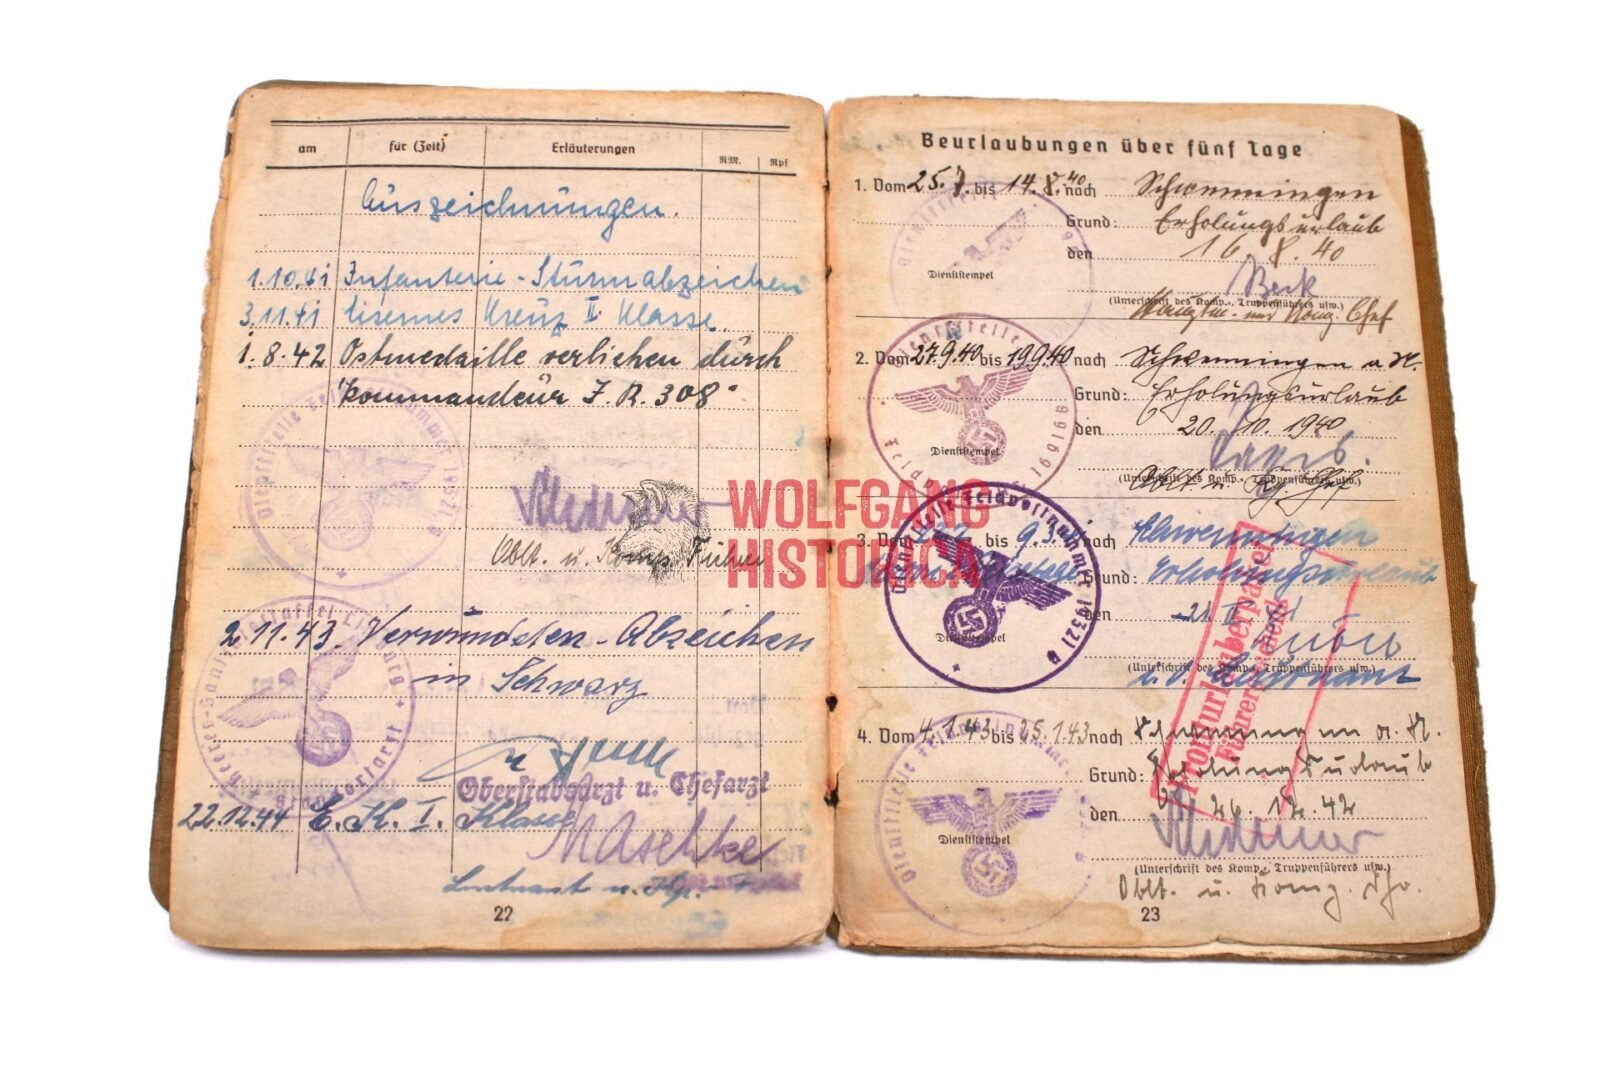 am für (Zeit) Erläuterungen RM. Rpf
Auszeichnungen.
1.10.41 Infanterie-Sturmabzeichen
3.11.41 Eisernes Kreuz II Klasse.
1.8.42 Ostmedaille verliehen durch
Kommandeur I.R. 308.
Dienststelle Feldpostnummer 19321
Oblt. u. Komp. Führer
2.11.43 Verwundeten-Abzeichen
in Schwarz
Oberstabsarzt u. Chefarzt
22.12.44 E.K.I. Klasse
Maschke
Leutnant u. Kp.-F
22
Beurlaubungen über fünf Tage
1. Vom 25.7. bis 14.8.40 nach Schwenningen
Grund: Erholungsurlaub
den 16.8.40
Dienststempel
Beck
(Unterschrift des Komp.-, Truppenführers usw.)
Hauptm. und Komp. Chef
Dienststelle
2. Vom 27.9.40 bis 19.9.40 nach Schwenningen a.N.
Grund: Erholungsurlaub
den 20.10.1940
Dienststempel
(Unterschrift des Komp.-, Truppenführers usw.)
Oblt. u. Kp. Chef
WOLFGANG
HISTORICA
Dienststelle Feldpostnummer 19321
3. Vom bis 9.3. nach Schwenningen
Grund: Erholungsurlaub
den
Dienststempel
(Unterschrift des Komp.-, Truppenführers usw.)
Fronturlauberpaket
4. Vom 4.1.43 bis 25.1.43 nach Schwenningen a.N.
Grund: Erholungsurlaub
den 26.12.42
Dienststempel
(Unterschrift des Komp.-, Truppenführers usw.)
Oblt. u. Komp. Fhr.
23